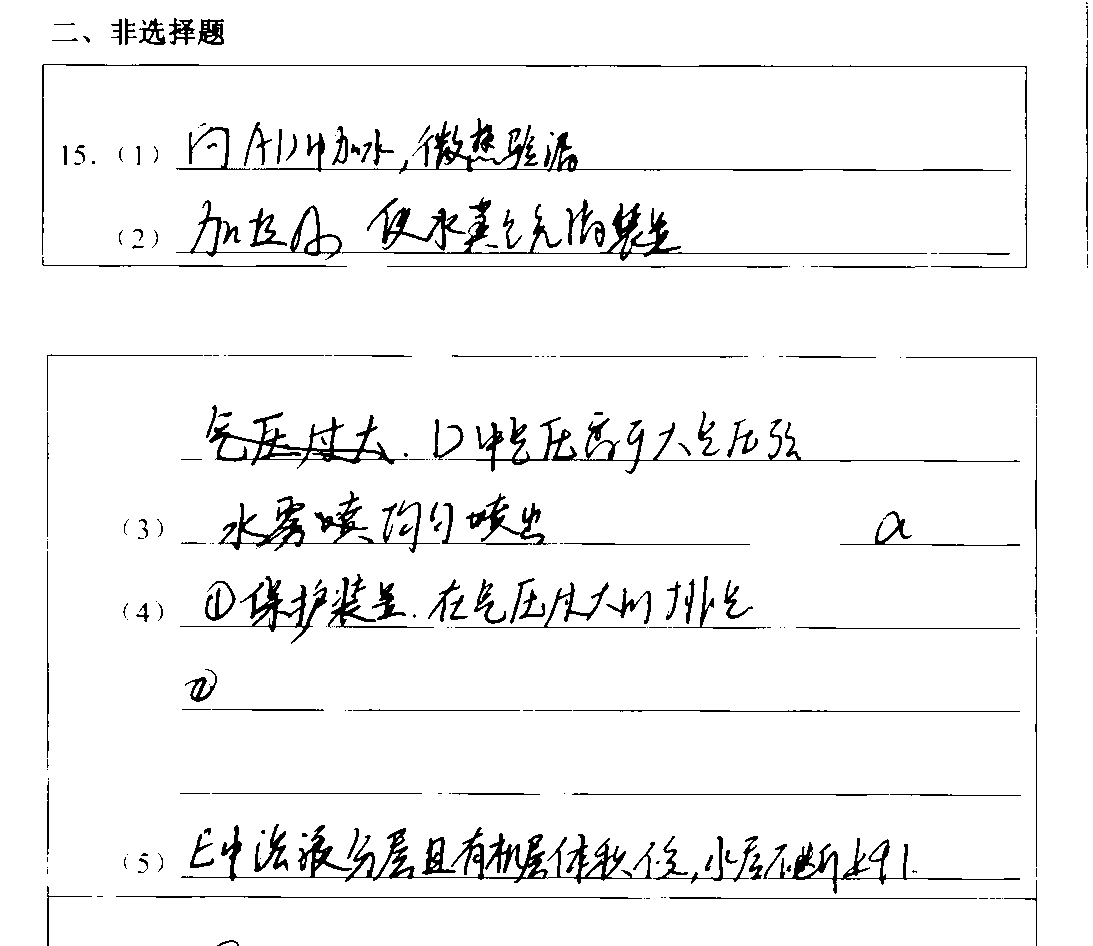 二、非选择题
15.（1）向A、D中加水，微热验漏
（2）加热A，使水蒸气充满装置
气压过大. D中气压高于大气压强
（3）水雾喷均匀喷出 a
（4）①保护装置.在气压过大时排气
②
（5）E中溶液分层且有机层体积不变，水层不断上升.